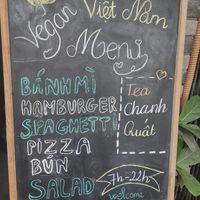 Vegan Việt Nam
Menu
BÁNH MÌ
HAMBURGER
SPAGHETTI
PIZZA
BÚN
SALAD
Tea
Chanh
Quất
7h-22h
welcome